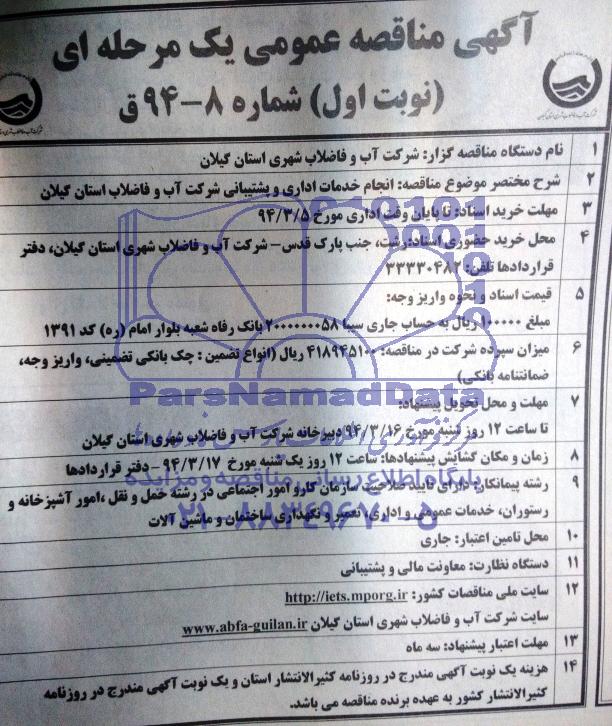 آگهی مناقصه عمومی یک مرحله ای
(نوبت اول) شماره ۸-۹۴ ق
۱ نام دستگاه مناقصه گزار: شرکت آب و فاضلاب شهری استان گیلان
۲ شرح مختصر موضوع مناقصه: انجام خدمات اداری و پشتیبانی شرکت آب و فاضلاب استان گیلان
۳ مهلت خرید اسناد: تا پایان وقت اداری مورخ ۹۴/۳/۵
۴ محل خرید حضوری اسناد: رشت، جنب پارک قدس- شرکت آب و فاضلاب شهری استان گیلان، دفتر
قراردادها تلفن: ۳۳۳۳۰۴۸۲
۵ قیمت اسناد و نحوه واریز وجه:
مبلغ ۱۰۰۰۰۰ ریال به حساب جاری سیبا ۲۰۰۰۰۰۰۰۵۸ بانک رفاه شعبه بلوار امام (ره) کد ۱۳۹۱
۶ میزان سپرده شرکت در مناقصه: ۴۱۸۹۴۵۱۰۰ ریال (انواع تضمین : چک بانکی تضمینی، واریز وجه،
ضمانتنامه بانکی)
۷ مهلت و محل تحویل پیشنهاد:
تا ساعت ۱۲ روز شنبه مورخ ۹۴/۳/۱۶ دبیرخانه شرکت آب و فاضلاب شهری استان گیلان
۸ زمان و مکان گشایش پیشنهادها: ساعت ۱۲ روز یک شنبه مورخ ۹۴/۳/۱۷ - دفتر قراردادها
۹ رشته پیمانکار: دارای تایید صلاحیت سازمان کار و امور اجتماعی در رشته حمل و نقل ،امور آشپزخانه و
رستوران، خدمات عمومی و اداری، تعمیر و نگهداری ساختمان و ماشین آلات
۱۰ محل تامین اعتبار: جاری
۱۱ دستگاه نظارت: معاونت مالی و پشتیبانی
۱۲ سایت ملی مناقصات کشور: http://iets.mporg.ir
سایت شرکت آب و فاضلاب شهری استان گیلان www.abfa-guilan.ir
۱۳ مهلت اعتبار پیشنهاد: سه ماه
۱۴ هزینه یک نوبت آگهی مندرج در روزنامه کثیرالانتشار استان و یک نوبت آگهی مندرج در روزنامه
کثیرالانتشار کشور به عهده برنده مناقصه می باشد.
ParsNamadData
پایگاه اطلاع رسانی مناقصه و مزایده
۰۲۱-۸۸۳۴۹۶۷۰-۵